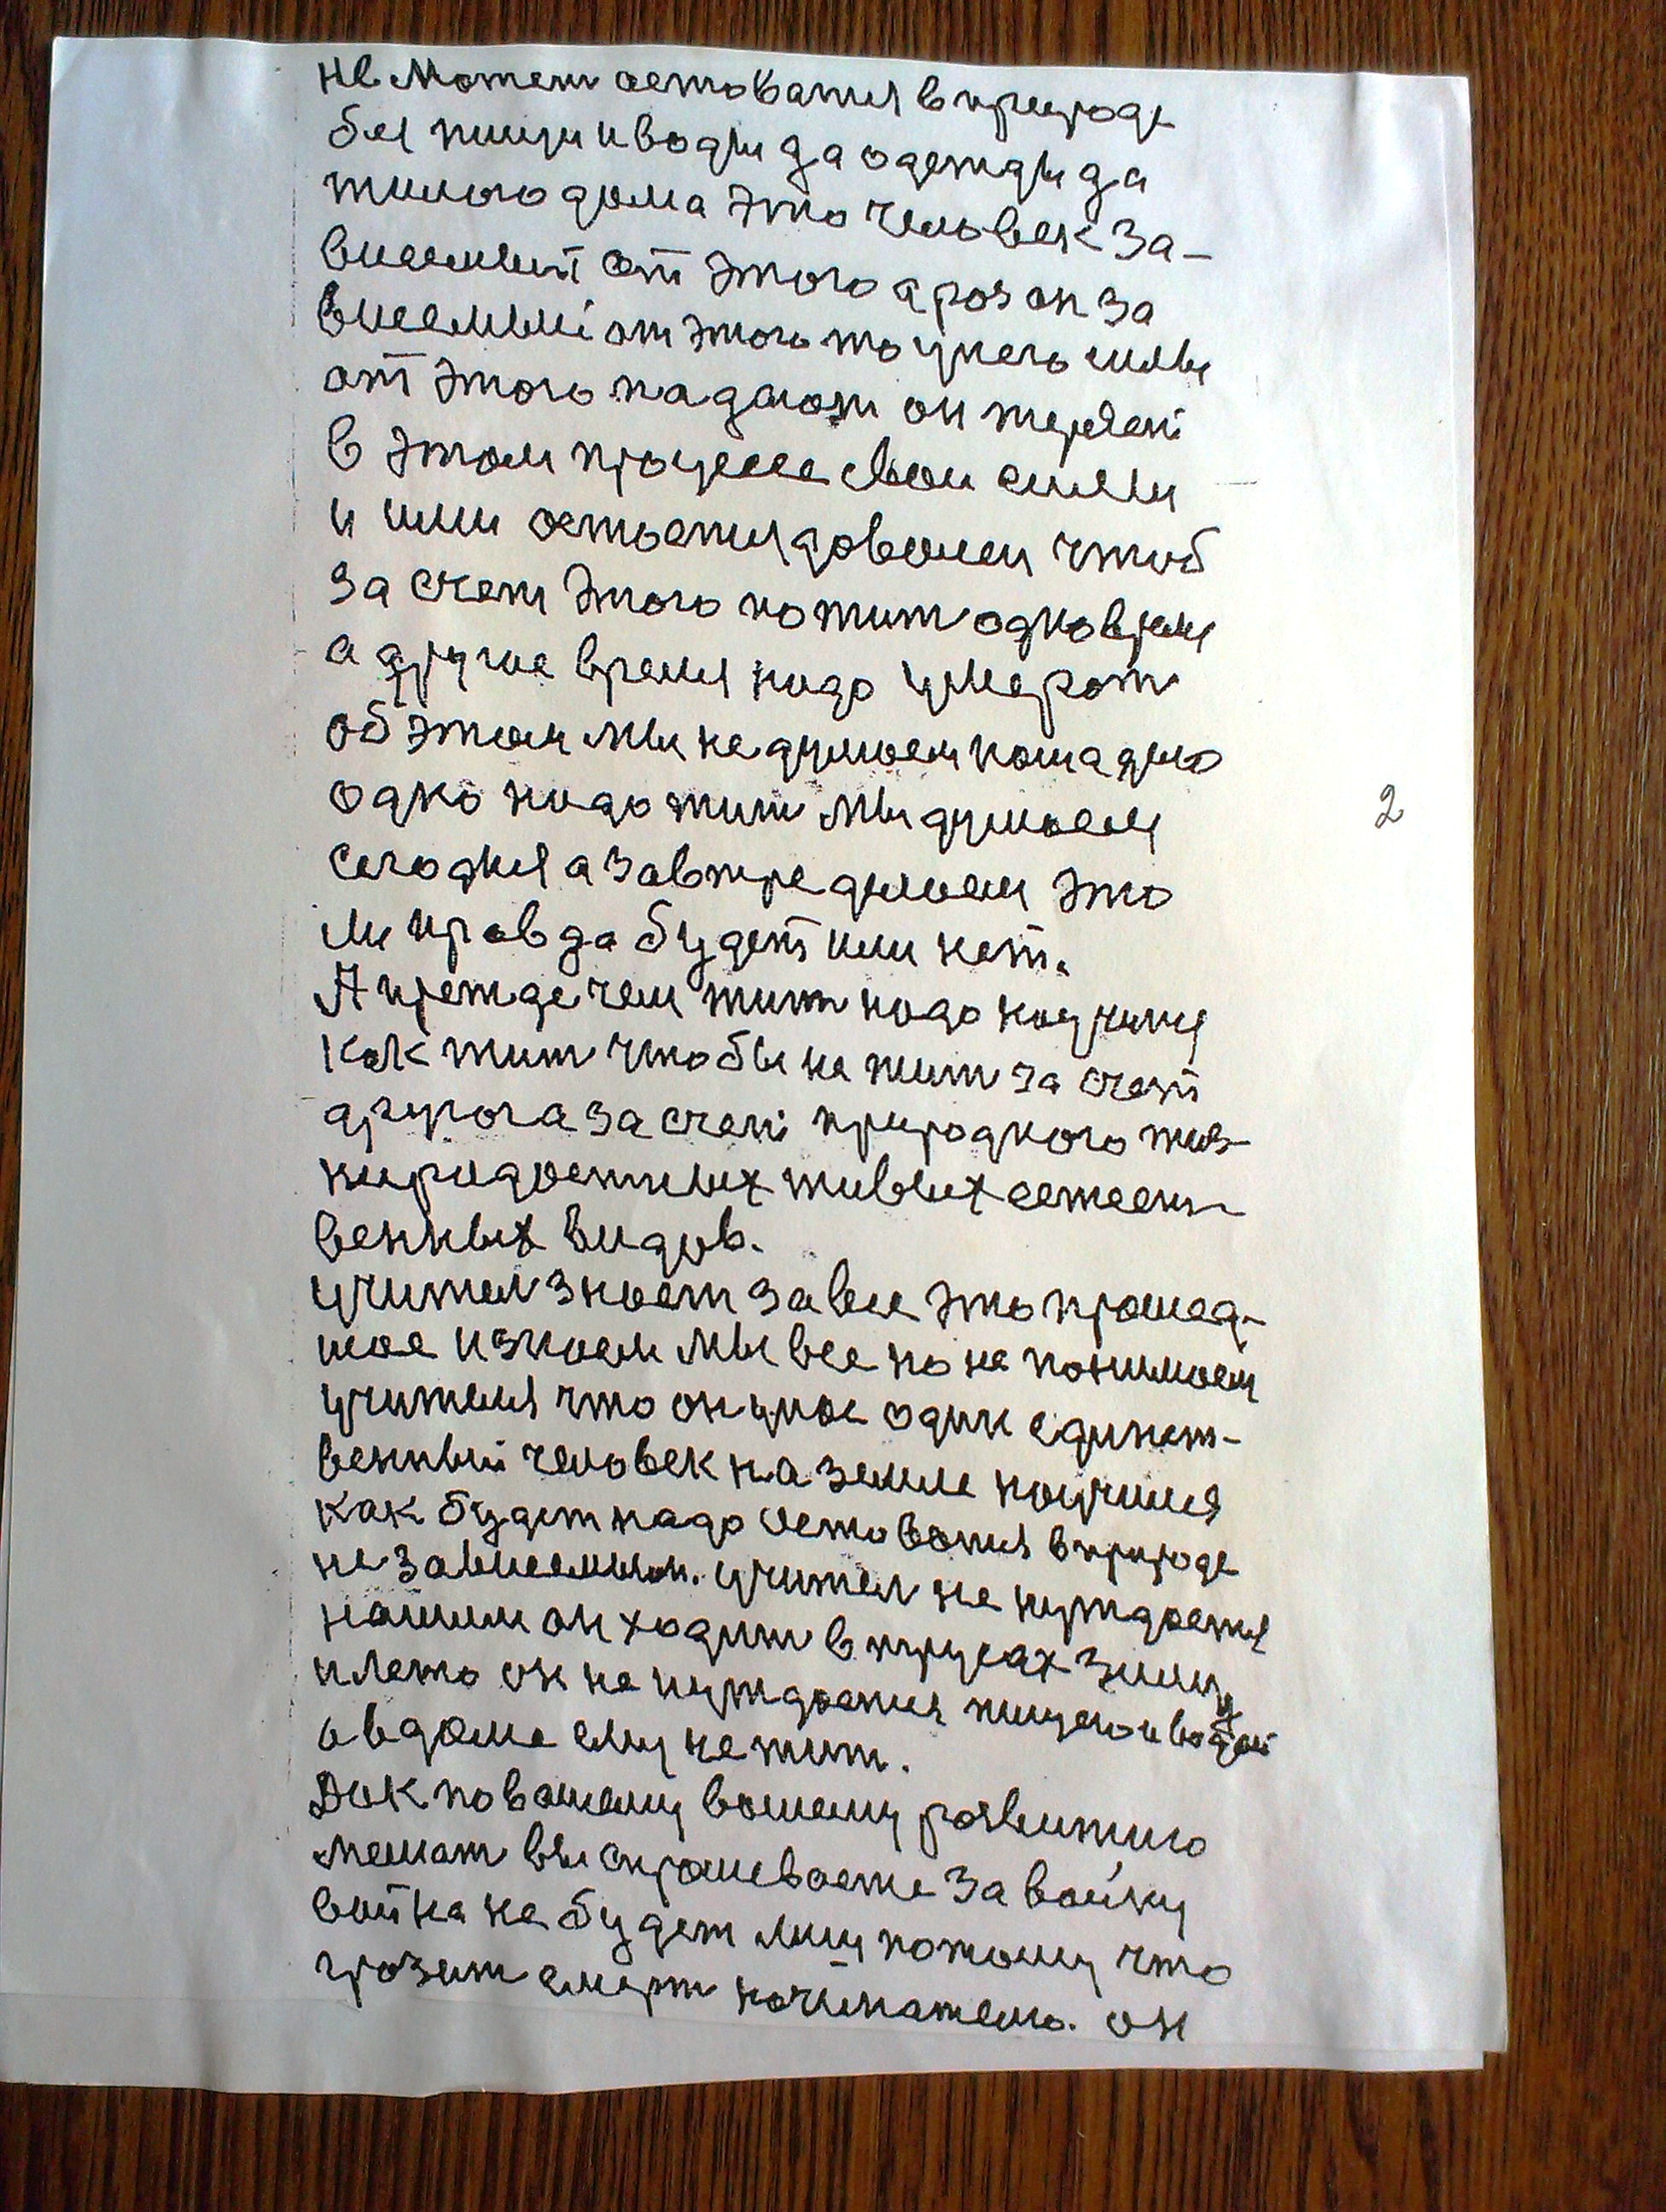 неможет остоватся в природе
без пищи и воды да одежды да
жилого дома это человек за-
висемый от этого а роз он за
висемый от этого то у него силы
от этого падают он теряет
в этом процесе свои силы
и ими остоется доволен чтоб
за счет этого пожит одно время
а другое время надо умерат
об этом мы не думоем наша дело
одно надо жит мы думоем
сегодня а завтре думоем это
ли правда будет или нет.
А прежде чем жит надо научится
как жит что бы не жит за счет
другога за счет природного жиз-
нирадостных живых естест-
венных видов.
учител знает за все это прошед-
шое и знаем мы все но не понимоем
учителя что он у нас один единст-
венный человек на земле научился
как будет надо остоватся в природе
не зависемым. учител не нуждоется
нашим он ходит в трусах зиму
и лето он не нуждоется пищею и водой
и в доме ему не жит.
Дак по вашему вашему розвитию
мешат вы спрошеваете за войну
война не будет миру потому что
грозит смерт начинателю. он
2